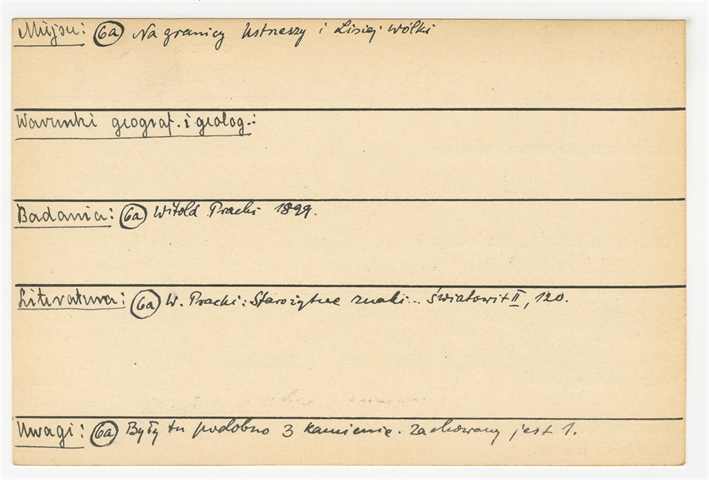 Miejsce: 6a Na granicy Ustneszy i Lisiej Wólki
Warunki geograf. i geolog.:
Badania: 6a Witold Pracki 1899.
Literatura: 6a W. Pracki: Starożytne znaki... Światowit II, 120.
Uwagi: 6a Były tu podobno 3 kamienie. Zachowany jest 1.